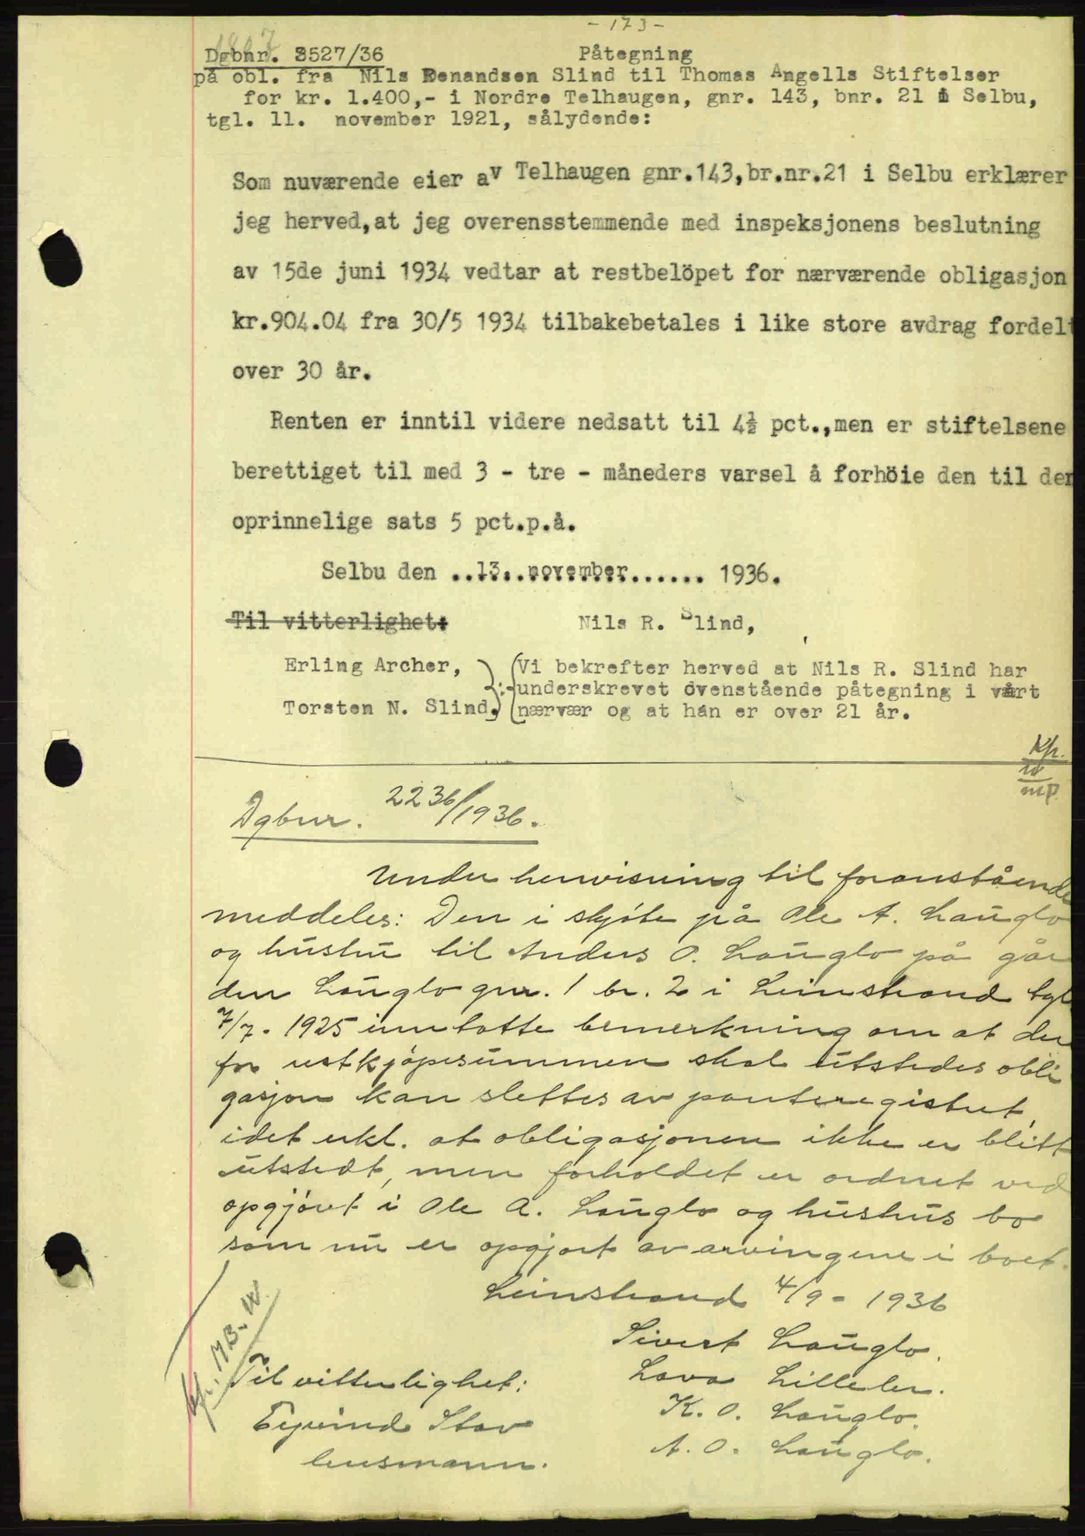 - 173 -
Dgbnr. 3527/36 Påtegning
på obl. fra Nils Renandsen Slind til Thomas Angells Stiftelser
for kr. 1.400,- i Nordre Telhaugen, gnr. 143, bnr. 21 i Selbu,
tgl. 11. november 1921, sålydende:
Som nuværende eier av Telhaugen gnr.143,br.nr.21 i Selbu erklærer
jeg herved,at jeg overensstemmende med inspeksjonens beslutning
av 15de juni 1934 vedtar at restbelöpet for nærværende obligasjon
kr.904.04 fra 30/5 1934 tilbakebetales i like store avdrag fordelt
over 30 år.
Renten er inntil videre nedsatt til 4½ pct.,men er stiftelsene
berettiget til med 3 - tre - måneders varsel å forhöie den til den
oprinnelige sats 5 pct.p.å.
Selbu den ..13. november...... 1936.
Til vitterlighet: Nils R. Slind,
Erling Archer,
Torsten N. Slind.
Vi bekrefter herved at Nils R. Slind har
underskrevet ovenstående påtegning i vårt
nærvær og at han er over 21 år.
Dgbnr. 2236/1936.
Under henvisning til foranstående
meddeles: Den i skjöte på Ole A. Lauglo
og hustru til Anders O. Lauglo på går
den Lauglo gnr. 1 br. 2 i Leinstrand tgl.
7/7. 1925 inntatte bemerkning om at der
for restkjöpesummen skal utstedes obli
gasjon kan slettes av panteregistret,
idet erkl. at obligasjonen ikke er blitt
utstedt, men forholdet er ordnet ved
opgjöret i Ole A. Lauglo og hustrus bo
som nu er opgjort av arvingene i boet.
Leinstrand 4/9 - 1936
Sivert Lauglo.
Til vitterlighet: Lava Lilleler.
Eyvind Stav K. O. Lauglo.
lensmann. A. O. Lauglo.